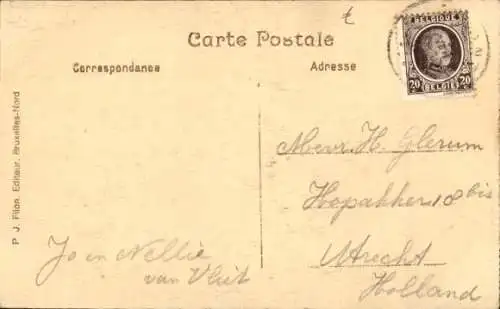 Carte Postale
Correspondance
Adresse
BELGIQUE
20 BELGIË 20
P. J. Flion, Editeur, Bruxelles-Nord
Mevr. H. Glerum
Hopakker 18 bis
Utrecht
Holland
Jo en Nellie
van Vliet